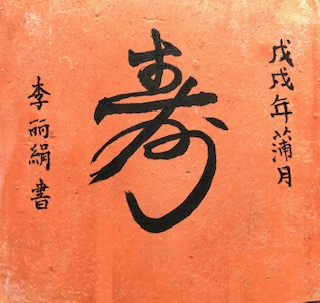 戊戌年蒲月
寿
李丽娟書